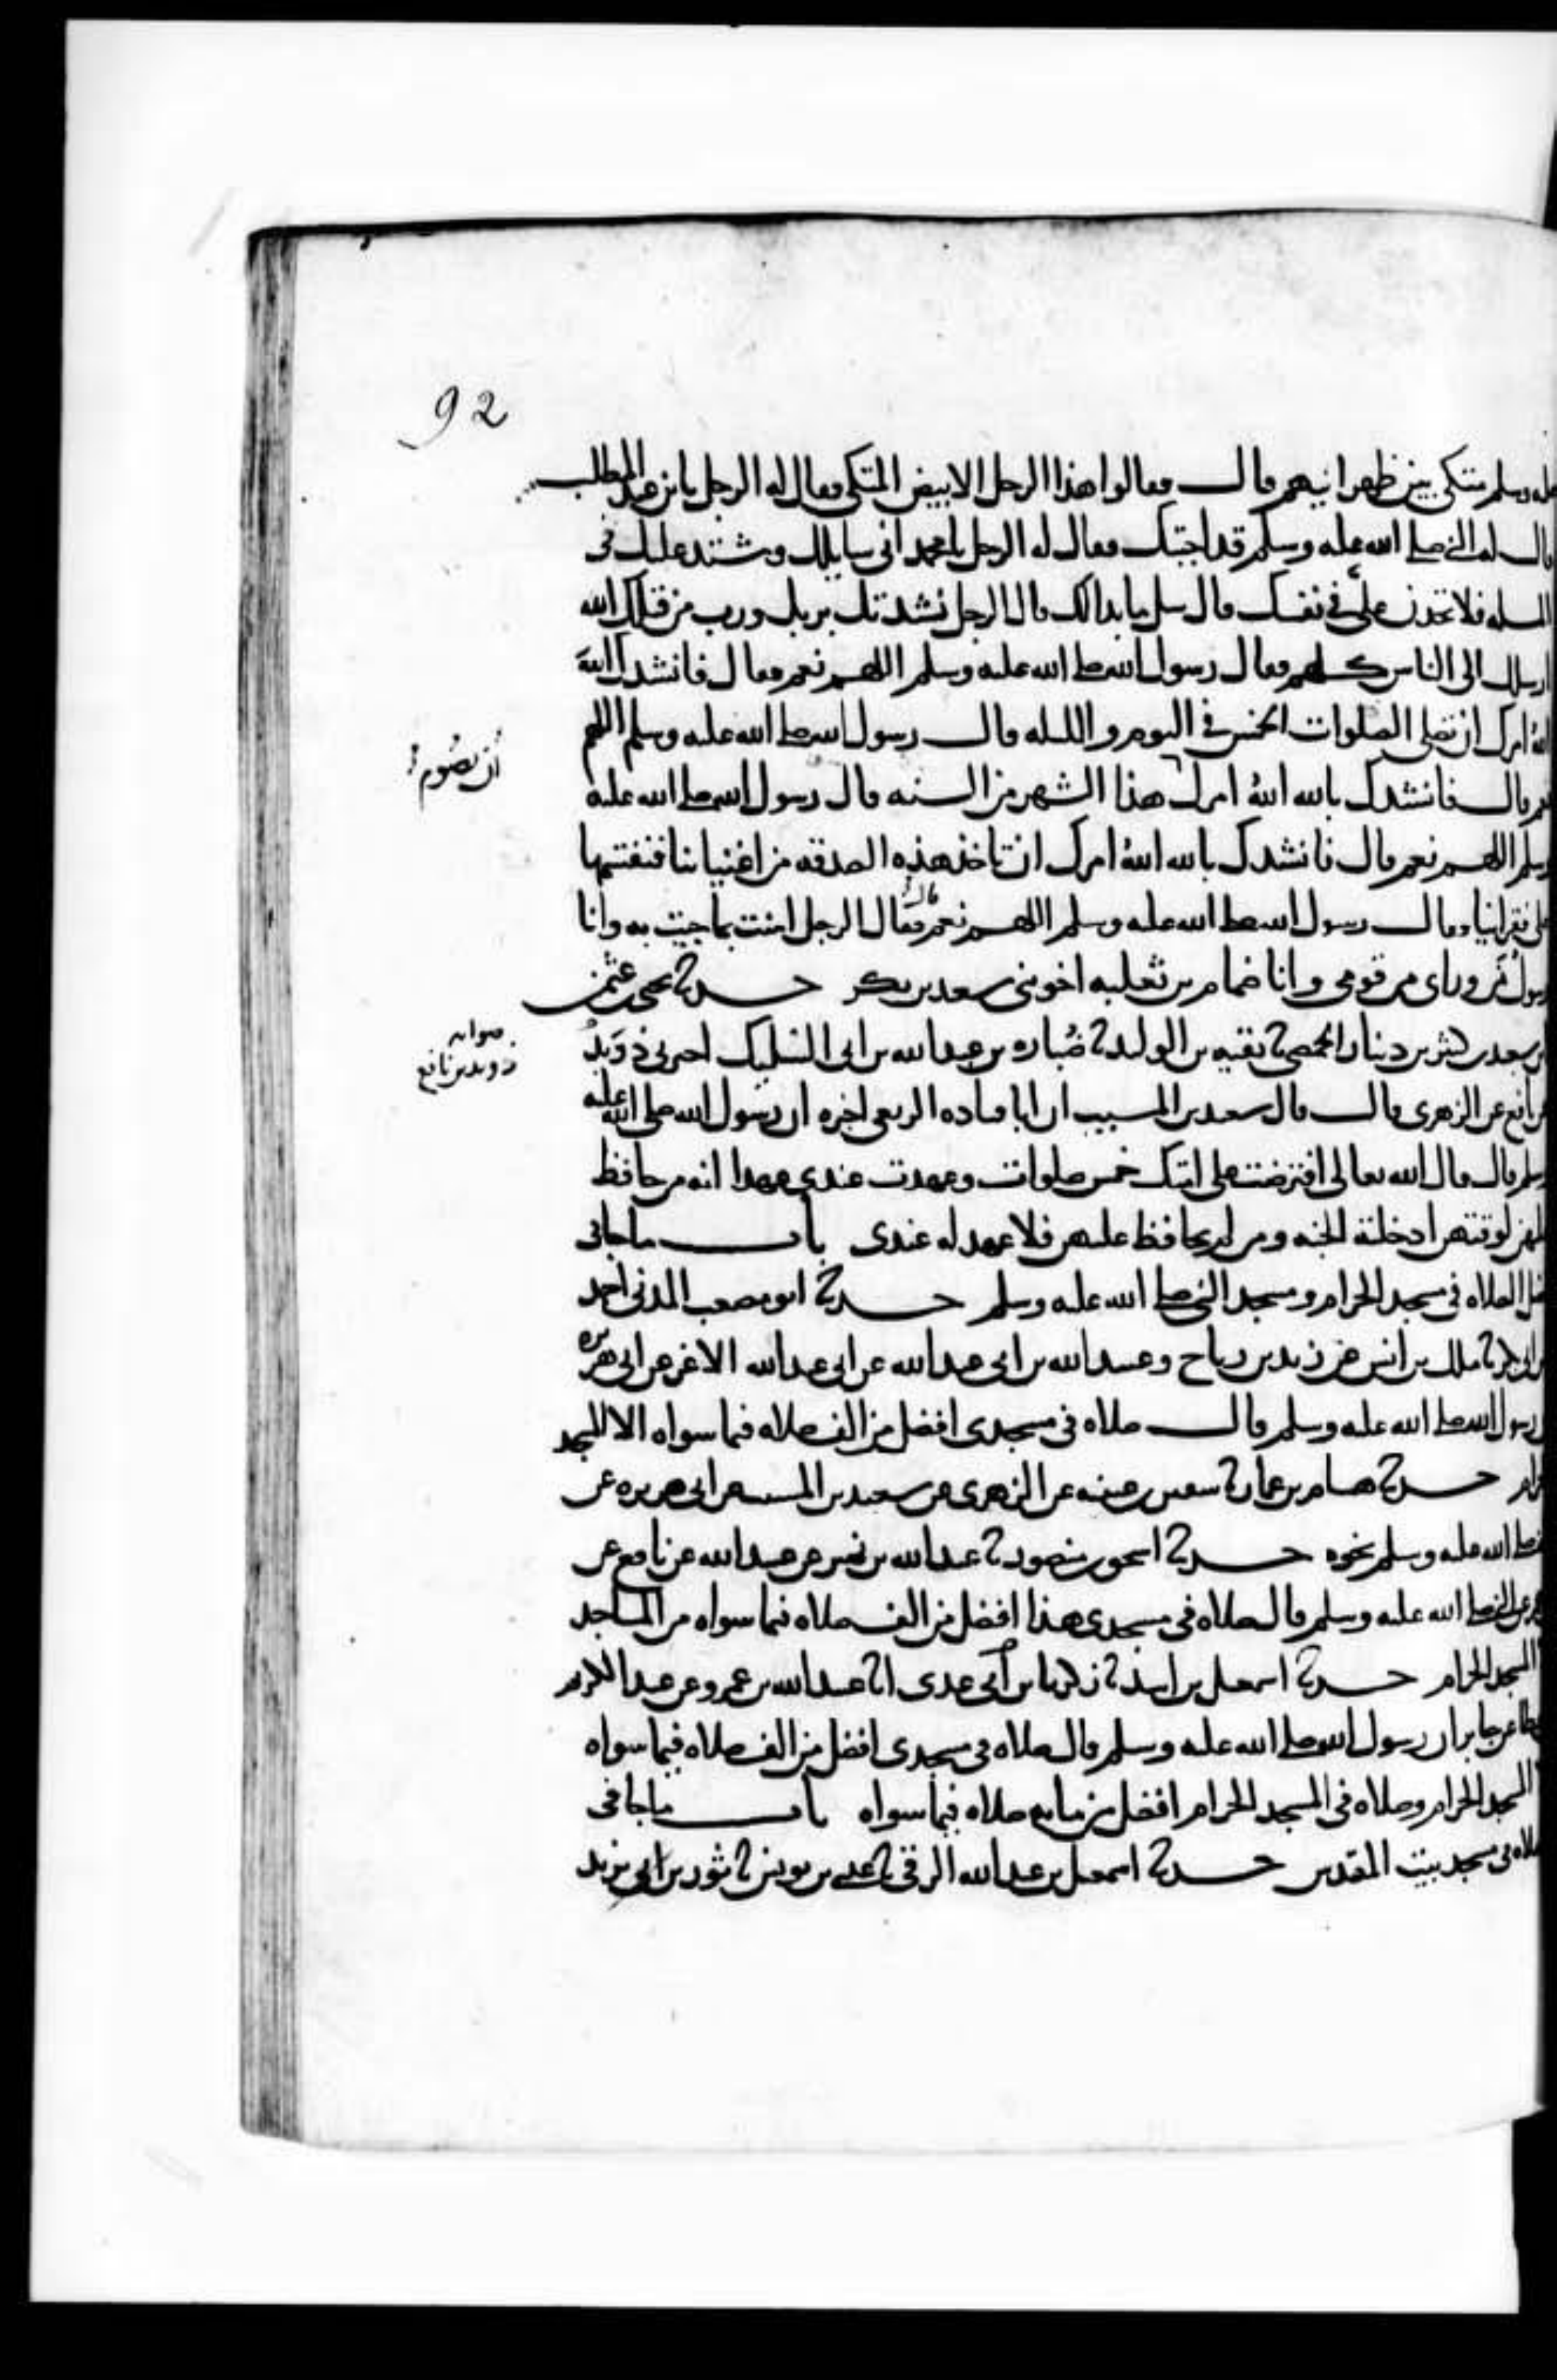 92
وسلم متكى بين ظهرانيهم قال فقالوا هذا الرجل الابيض المتكى فقال له الرجل يا بن عبد المطلب
قال له النبى صلى الله عليه وسلم قد اجبتك فقال له الرجل يا محمد انى سايلك ومشتد عليك فى
المسله فلا تجدن على فى نفسك قال سل ما بدالك قال الرجل نشدتك بربك ورب من قبلك الله
ارسلك الى الناس كلهم فقال رسول الله صلى الله عليه وسلم اللهم نعم فقال فانشدك الله
الله امرك ان تصلى الصلوات الخمس فى اليوم والليله قال رسول الله صلى الله عليه وسلم اللهم
نعم قال فانشدك بالله الله امرك هذا الشهر من السنه قال رسول الله صلى الله عليه
ان تصوم
وسلم اللهم نعم قال فانشدك بالله الله امرك ان تاخذ هذه الصدقه من اغنياينا فتقسمها
على فقراينا وقال رسول الله صلى الله عليه وسلم اللهم نعم فقال الرجل امنت بما جيت به وانا
رسول من وراى من قومى وانا ضمام بن ثعلبه اخو بنى سعد بن بكر حدثنا يحيى بن عثمن
بن سعيد بن كثير بن دينار الحمصى ثنا بقيه بن الوليد ثنا ضباره بن عبد الله بن ابى السليك اخبرنى دويد
صوابه
دويد بن نافع
بن نافع عن الزهرى قال قال سعيد بن المسيب ان ابا قتاده الربعى اخبره ان رسول الله صلى الله عليه
وسلم قال قال الله تعالى افترضت على امتك خمس صلوات وعهدت عندى عهدا انه من حافظ
عليهن لوقتهن ادخلته الجنه ومن لم يحافظ عليهن فلا عهد له عندى باب ما جا فى
فضل الصلاه فى مسجد الحرام ومسجد النبى صلى الله عليه وسلم حدثنا ابو مصعب المدنى احمد
بن ابى بكر ثنا ملك بن انس عن زيد بن رباح وعبيد الله بن ابى عبد الله عن ابى عبد الله الاغر عن ابى هريره
ان رسول الله صلى الله عليه وسلم قال صلاه فى مسجدى افضل من الف صلاه فيما سواه الا المسجد
الحرام حدثنا هشام بن عمار ثنا سفين بن عيينه عن الزهرى عن سعيد بن المسيب عن ابى هريره عن
صلى الله عليه وسلم نحوه حدثنا اسحق بن منصور ثنا عبد الله بن نمير عن عبيد الله عن نافع عن
عمر عن النبى صلى الله عليه وسلم قال صلاه فى مسجدى هذا افضل من الف صلاه فيما سواه من المساجد
المسجد الحرام حدثنا اسمعيل بن اسد ثنا زكريا بن عدى انا عبيد الله بن عمرو عن عبد الكريم
عطا عن جابر ان رسول الله صلى الله عليه وسلم قال صلاه فى مسجدى افضل من الف صلاه فيما سواه
المسجد الحرام وصلاه فى المسجد الحرام افضل من مايه صلاه فيما سواه باب ما جا فى
صلاه فى مسجد بيت المقدس حدثنا اسمعيل بن عبد الله الرقى ثنا عيسى بن يونس ثنا ثور بن يزيد